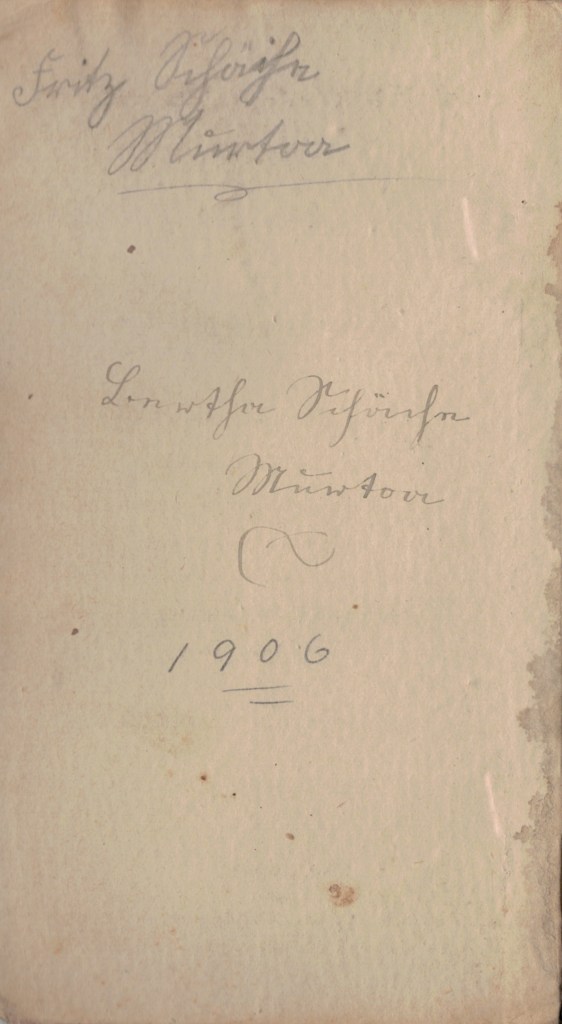 Fritz Schäche
Murtoa
Bertha Schäche
Murtoa
1906